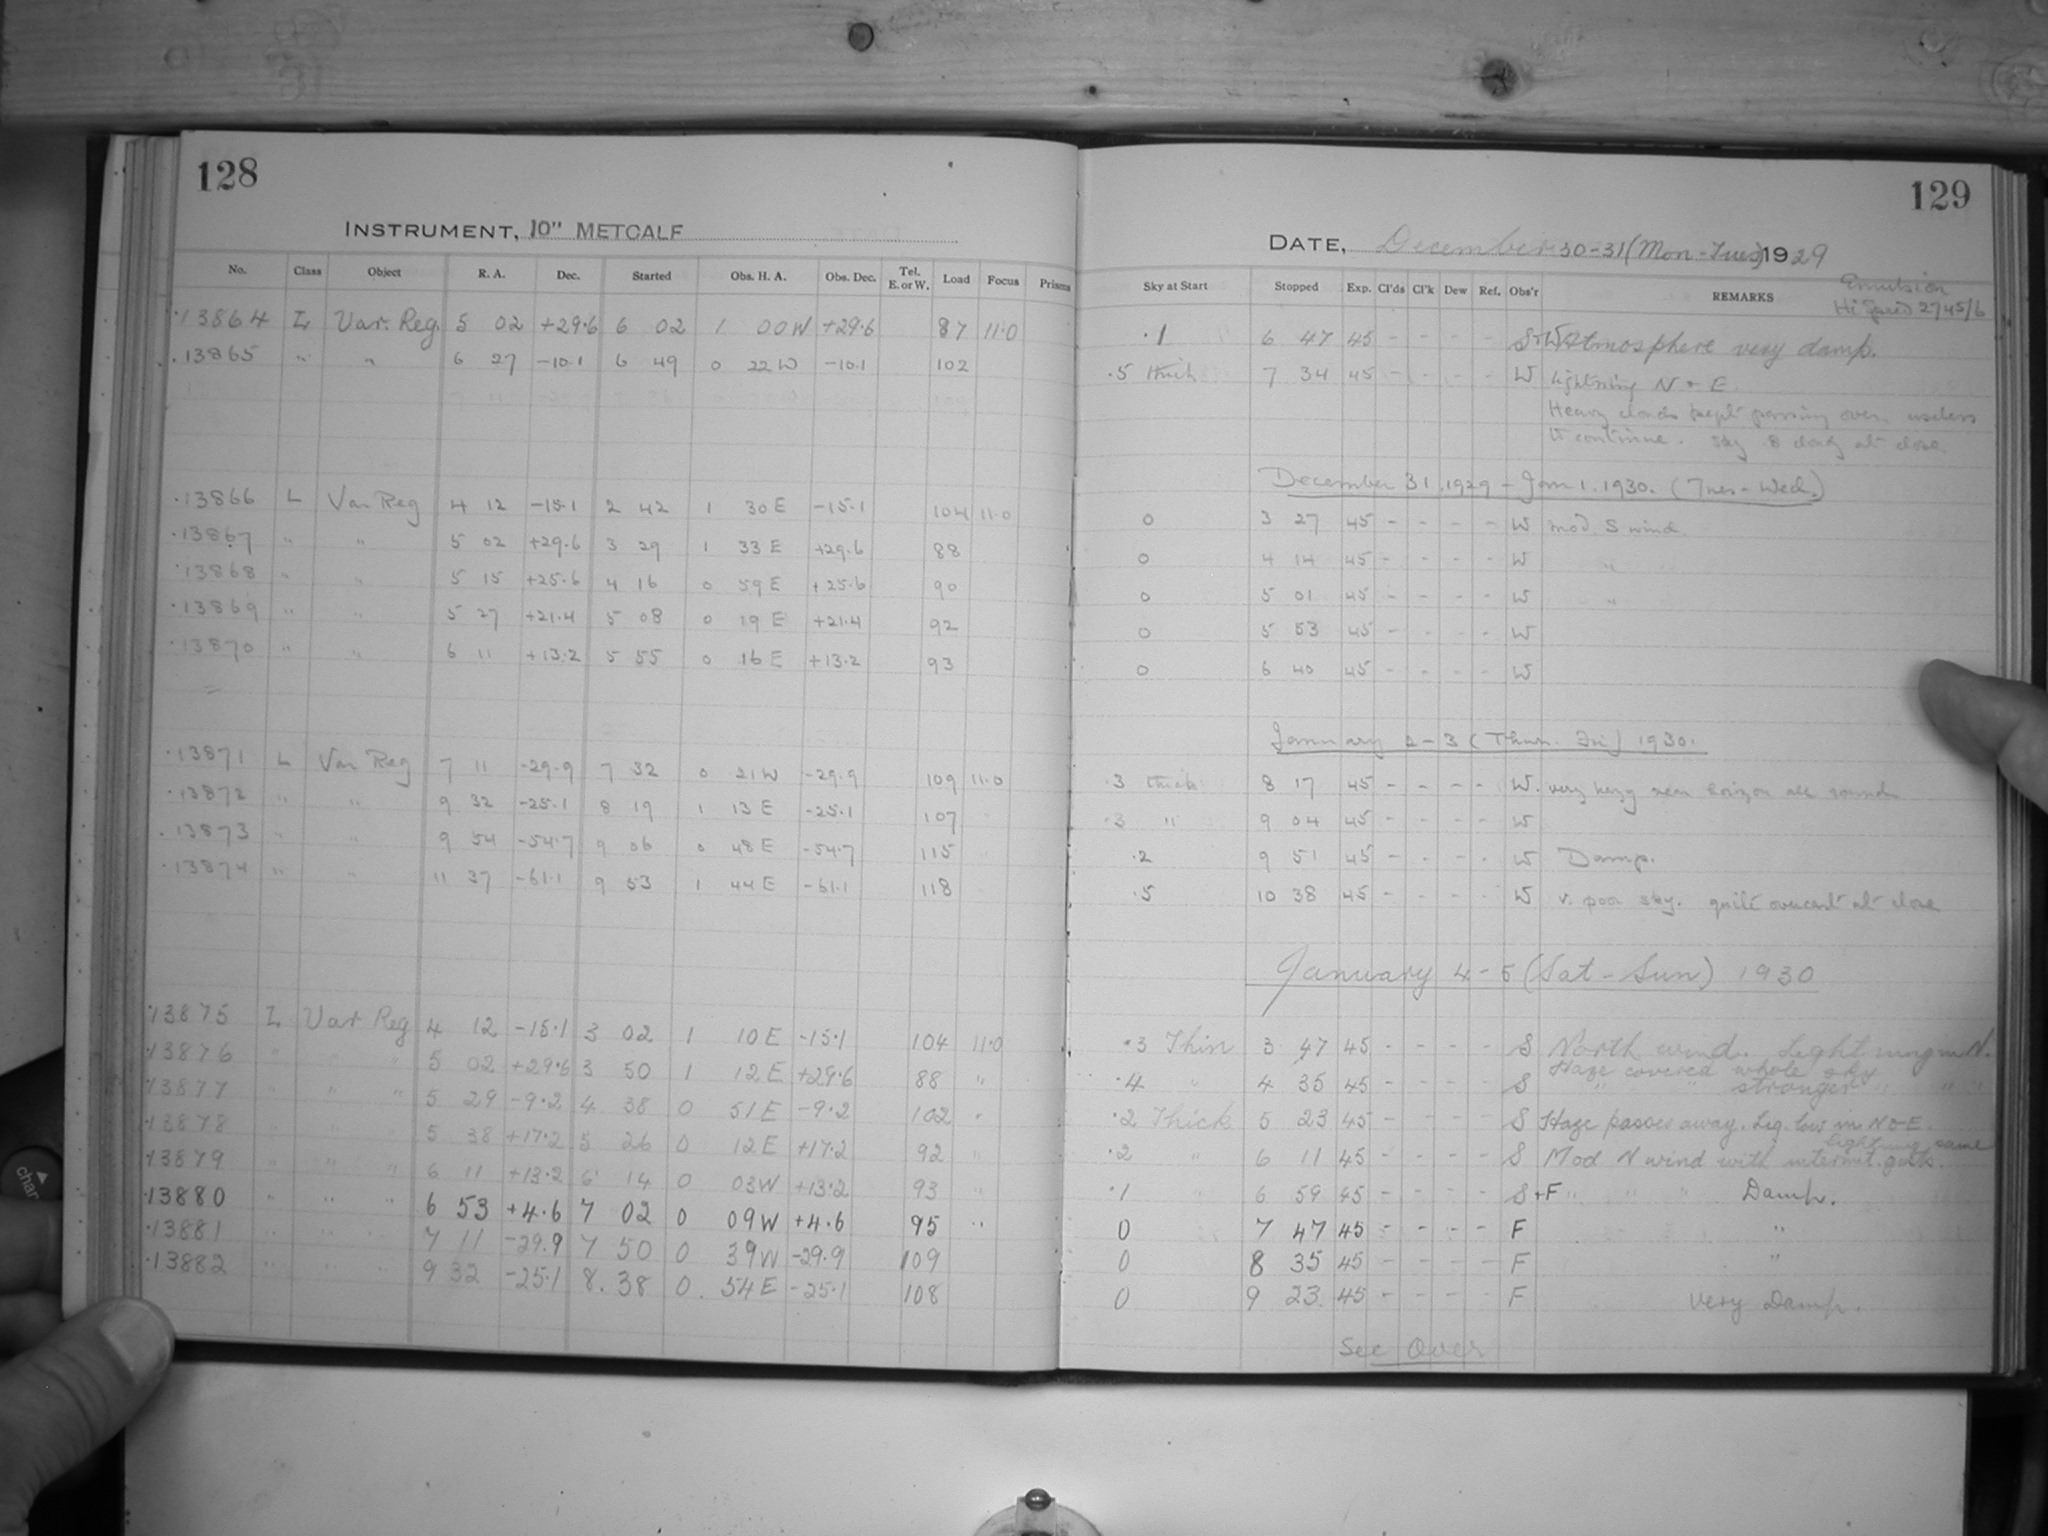 128
INSTRUMENT, 10" METCALF
No. Class Object R. A. Dec. Started Obs. H. A. Obs. Dec. Tel. E. or W. Load Focus Prisms
·13864 L Var. Reg. 5 02 +29·6 6 02 1 00 W +29·6 87 11·0
·13865 " " 6 27 -10·1 6 49 0 22 W -10·1 102
·13866 L Var Reg 4 12 -15·1 2 42 1 30 E -15·1 104 11·0
·13867 " " 5 02 +29·6 3 29 1 33 E +29·6 88
·13868 " " 5 15 +25·6 4 16 0 59 E +25·6 90
·13869 " " 5 27 +21·4 5 08 0 19 E +21·4 92
·13870 " " 6 11 +13·2 5 55 0 16 E +13·2 93
·13871 L Var Reg 7 11 -29·9 7 32 0 21 W -29·9 109 11·0
·13872 " " 9 32 -25·1 8 19 1 13 E -25·1 107
·13873 " " 9 54 -54·7 9 06 0 48 E -54·7 115
·13874 " " 11 37 -61·1 9 53 1 44 E -61·1 118
·13875 L Var Reg 4 12 -15·1 3 02 1 10 E -15·1 104 11·0
·13876 " " " 5 02 +29·6 3 50 1 12 E +29·6 88 "
·13877 " " " 5 29 -9·2 4 38 0 51 E -9·2 102 "
·13878 " " " 5 38 +17·2 5 26 0 12 E +17·2 92 "
·13879 " " " 6 11 +13·2 6 14 0 03 W +13·2 93 "
·13880 " " " 6 53 +4·6 7 02 0 09 W +4·6 95 "
·13881 " " " 7 11 -29·9 7 50 0 39 W -29·9 109
·13882 " " " 9 32 -25·1 8. 38 0. 54 E -25·1 108
129
DATE, December 30-31 (Mon-Tues) 1929
Sky at Start Stopped Exp. Cl'ds Cl'k Dew Ref. Obs'r REMARKS
Emulsion
Hi Speed 2745/6
·1 6 47 45 - - - - S+W Atmosphere very damp.
·5 thick 7 34 45 - - - - W lightning N + E.
Heavy clouds kept passing over useless
to continue. Sky ·8 cloudy at close
December 31, 1929 - Jan 1. 1930. (Tues - Wed.)
0 3 27 45 - - - - W mod. S wind
0 4 14 45 - - - - W "
0 5 01 45 - - - - W "
0 5 53 45 - - - - W
0 6 40 45 - - - - W
January 2-3 (Thur. Fri) 1930.
·3 thick 8 17 45 - - - - W. very hazy near horizon all round
·3 " 9 04 45 - - - - W
·2 9 51 45 - - - - W Damp.
·5 10 38 45 - - - - W v. poor sky. quite overcast at close
January 4-5 (Sat-Sun) 1930
·3 Thin 3 47 45 - - - - S North wind. Lightning in N.
Haze covered whole sky
·4 " 4 35 45 - - - - S " " stronger " " "
·2 Thick 5 23 45 - - - - S Haze passes away. Lig. low in N & E.
lightning same
·2 " 6 11 45 - - - - S Mod N wind with intermit. gusts.
·1 " 6 59 45 - - - - S+F " " " Damp.
0 7 47 45 - - - - F "
0 8 35 45 - - - - F "
0 9 23. 45 - - - - F very Damp.
See Over
char